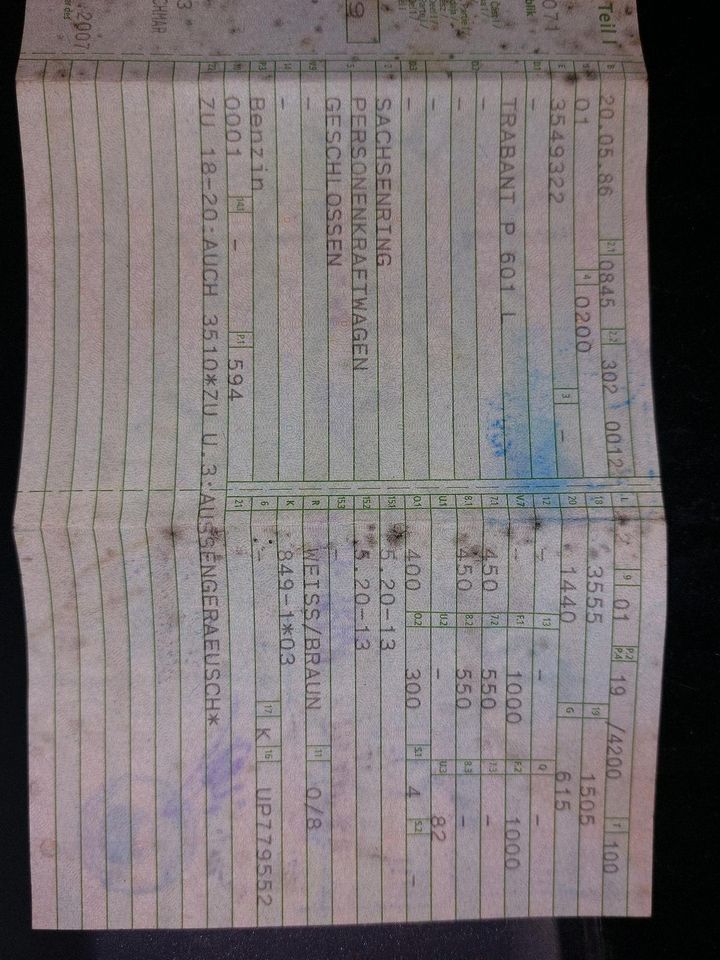 Teil I
071
9
CHMAR
.2007
B 20.05.86 2.1 0845 2.2 302 0012 L 2 9 01 P.2 P.4 19 /4200 T 100
01 4 0200 18 3555 19 1505
E 3549322 3 - 20 1440 G 615
D.1 - 12 - 13 - Q -
TRABANT P 601 L V.7 - F.1 1000 F.2 1000
- 7.1 450 7.2 550 7.3 -
D.2 - 8.1 450 8.2 550 8.3 -
- U.1 - U.2 - U.3 82
D.3 - O.1 400 O.2 300 S.1 4 S.2 -
2 SACHSENRING 15.1 5.20-13
5 PERSONENKRAFTWAGEN 15.2 5.20-13
GESCHLOSSEN 15.3 -
V.9 - R WEISS/BRAUN 11 0/8
14 - K 849-1*03
P.3 Benzin 6 - 17 K 16 UP779552
10 0001 14.1 - P.1 594 21
22 ZU 18-20:AUCH 3510*ZU U.3:AUSSENGERAEUSCH*